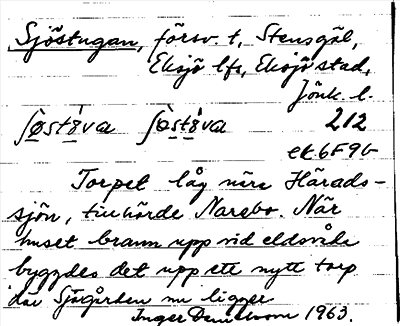 Sjöstugan, försv. t, Stensgöl,
Eksjö lfs, Eksjö stad,
Jönk. l.
212
ek 6F9b
Torpet låg nära Härads-
sjön, tillhörde Narebo. När
huset brann upp vid eldsvåda
byggdes det upp ett nytt torp
där Sjögården nu ligger
Inger 1963.